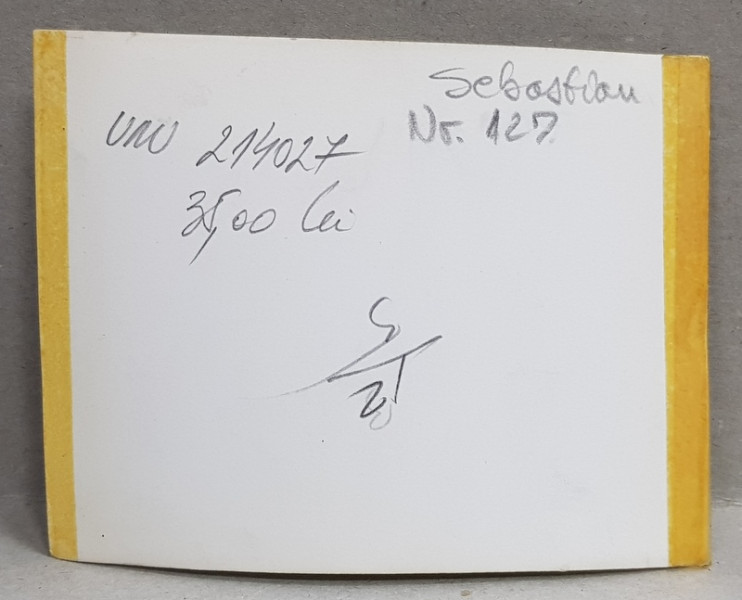 Sebastian
Nr. 127
UNV 214027
35,00 lei